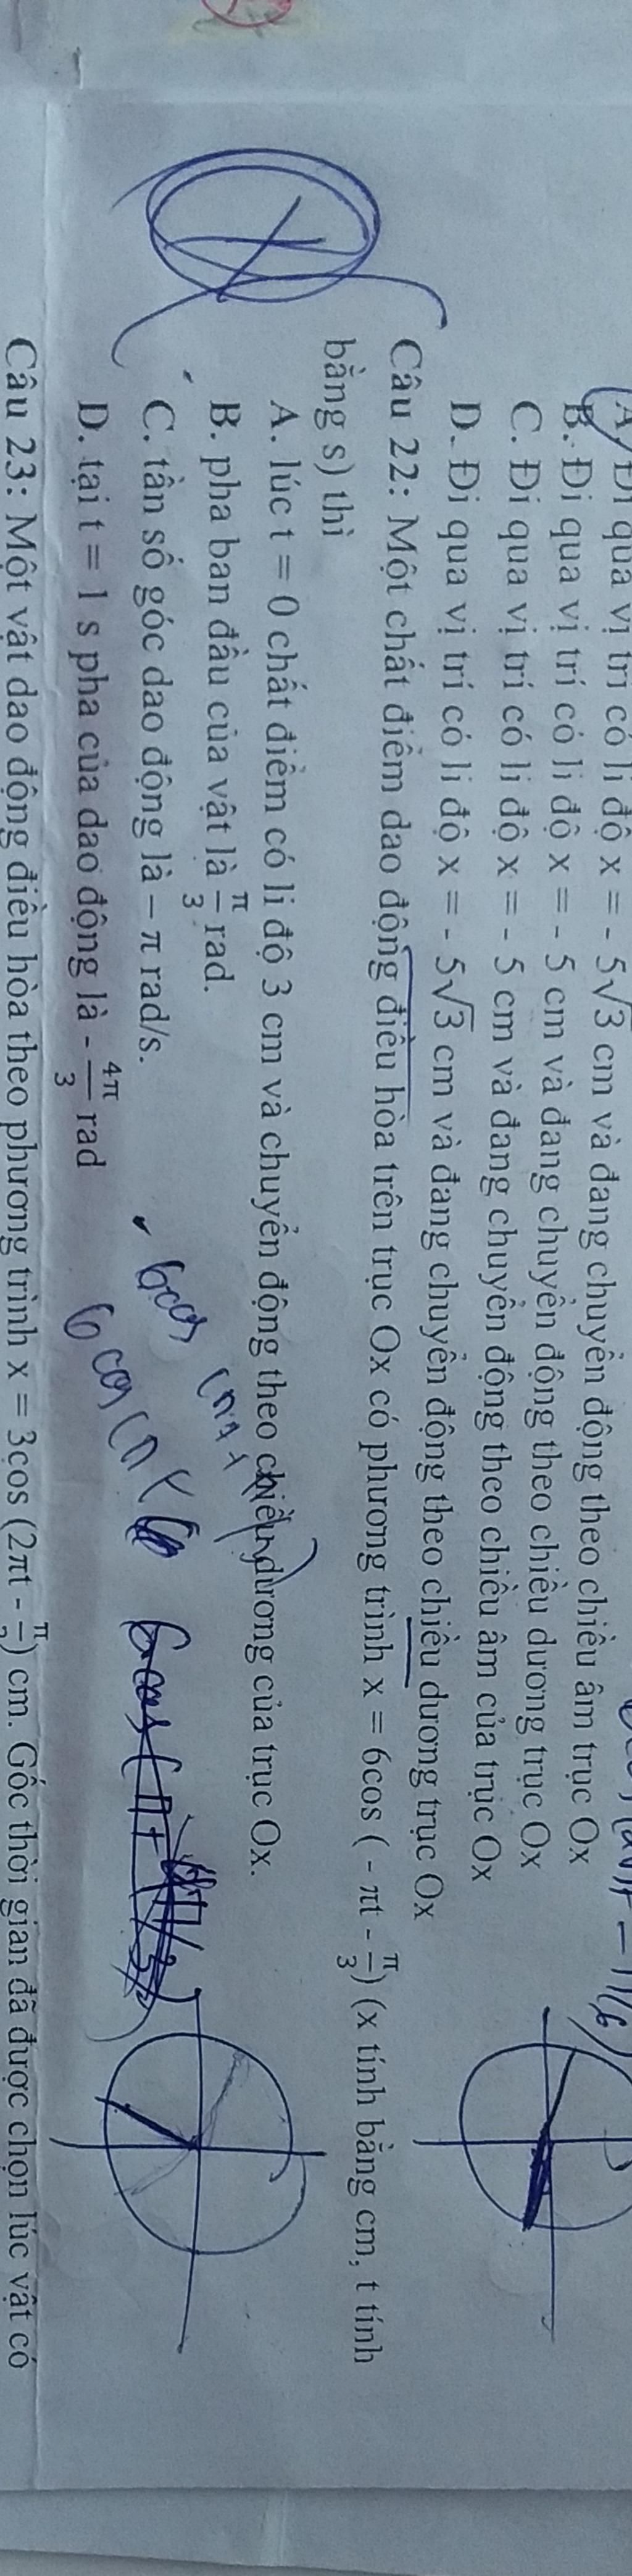 A. Đi qua vị trí có li độ x = - 5√3 cm và đang chuyển động theo chiều âm trục Ox
B. Đi qua vị trí có li độ x = - 5 cm và đang chuyển động theo chiều dương trục Ox
C. Đi qua vị trí có li độ x = - 5 cm và đang chuyển động theo chiều âm của trục Ox
D. Đi qua vị trí có li độ x = - 5√3 cm và đang chuyển động theo chiều dương trục Ox
Câu 22: Một chất điểm dao động điều hòa trên trục Ox có phương trình x = 6cos ( - πt - π/3) (x tính bằng cm, t tính
bằng s) thì
A. lúc t = 0 chất điểm có li độ 3 cm và chuyển động theo chiều dương của trục Ox.
B. pha ban đầu của vật là π/3 rad.
C. tần số góc dao động là – π rad/s.
D. tại t = 1 s pha của dao động là - 4π/3 rad
6cos
6 cos
Câu 23: Một vật dao động điều hòa theo phương trình x = 3cos (2πt - π) cm. Gốc thời gian đã được chọn lúc vật có